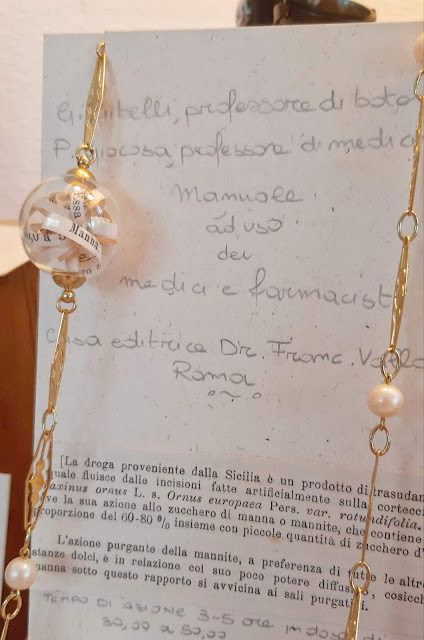 G. Gibelli, professore di bota
P. Giacosa, professore di medic
Manuale
ad uso
dei
medici e farmacist
Casa editrice Dr. Franc. Val
Roma
essa
Manna
[La droga proveniente dalla Sicilia è un prodotto di trasudam
quale fluisce dalle incisioni fatte artificialmente sulla cortecci
axinus ornus L. s. Ornus europaea Pers. var. rotundifolia.
ve la sua azione allo zucchero di manna o mannite, che contiene
proporzione del 60-80 % insieme con piccole quantità di zucchero d'
L'azione purgante della mannite, a preferenza di tutte le altre
stanze dolci, è in relazione col suo poco potere diffus, cosicch
manna sotto questo rapporto si avvicina ai sali purgati
TEMPO DI AZIONE 3-5 ore in dos
30,00 a 50,00